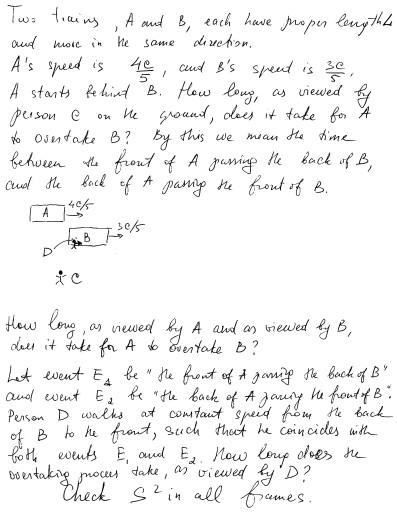 Two trains, A and B, each have proper length L
and move in the same direction.
A's speed is 4c/5, and B's speed is 3c/5.
A starts behind B. How long, as viewed by
person C on the ground, does it take for A
to overtake B? By this we mean the time
between the front of A passing the back of B,
and the back of A passing the front of B.
A 4c/5
B 3c/5
D
C
How long, as viewed by A and as viewed by B,
does it take for A to overtake B?
Let event E1 be "the front of A passing the back of B"
and event E2 be "the back of A passing the front of B".
Person D walks at constant speed from the back
of B to the front, such that he coincides with
both events E1 and E2. How long does the
overtaking process take, as viewed by D?
Check S² in all frames.